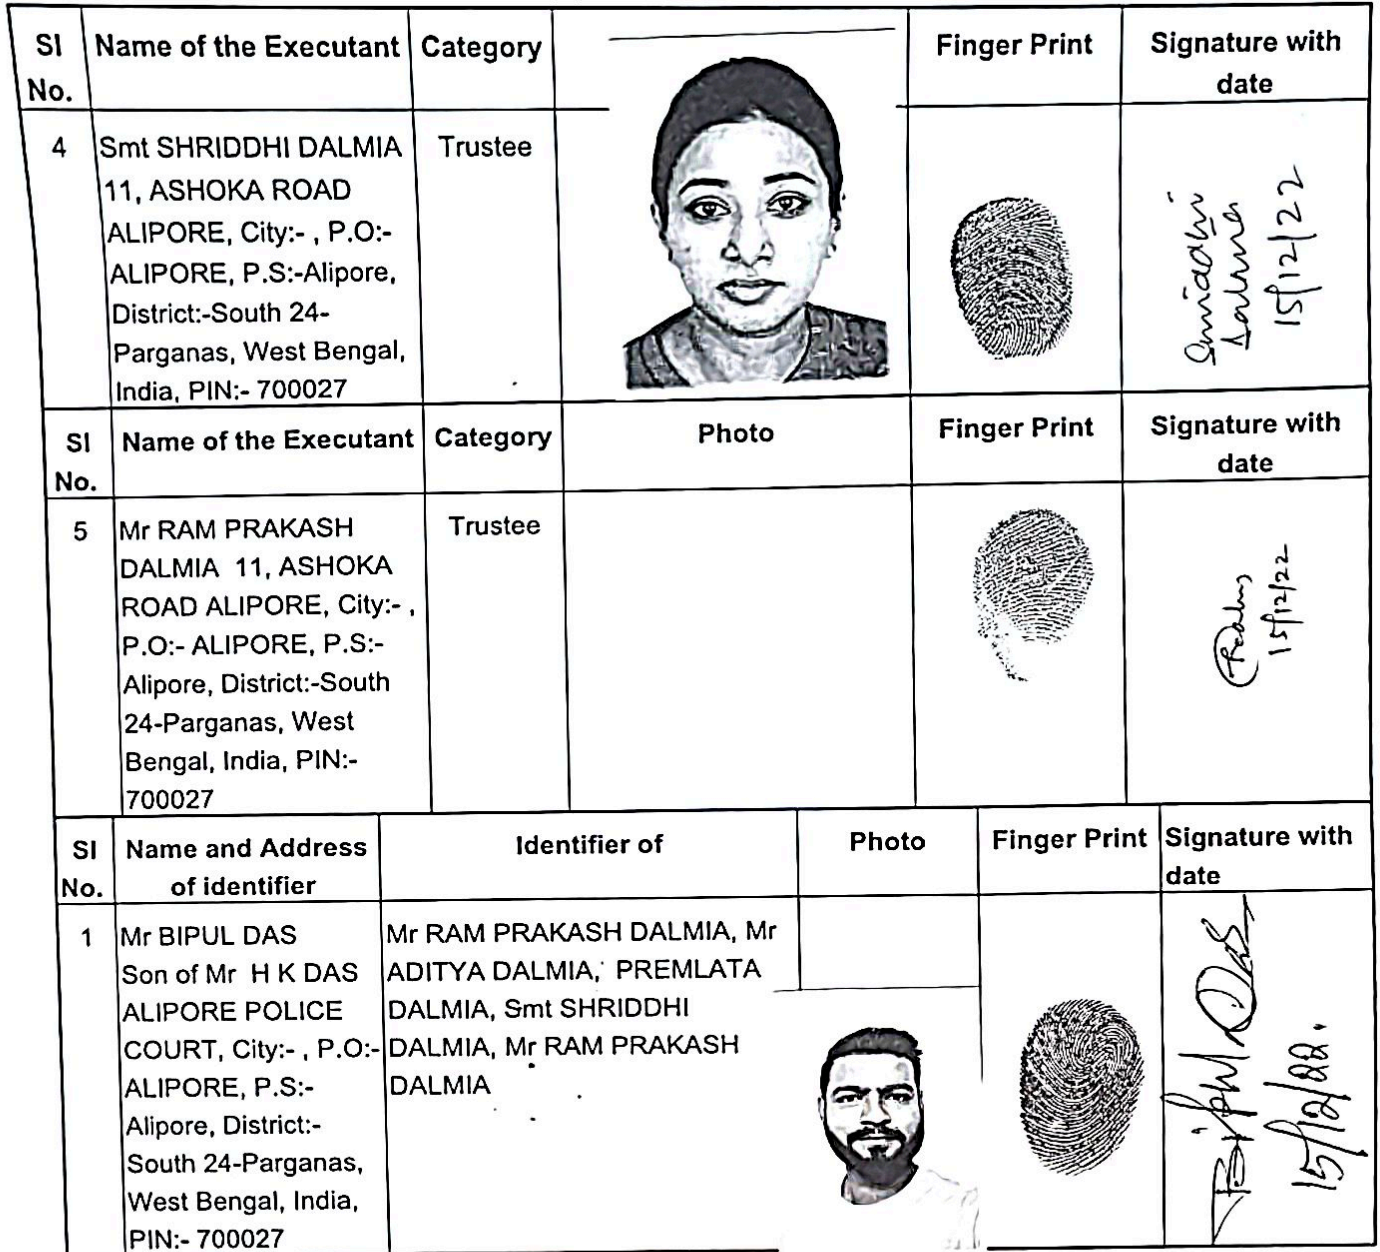 Sl No. Name of the Executant Category Finger Print Signature with date
4 Smt SHRIDDHI DALMIA Trustee
11, ASHOKA ROAD
ALIPORE, City:- , P.O:-
ALIPORE, P.S:-Alipore,
District:-South 24-
Parganas, West Bengal,
India, PIN:- 700027
Shriddhi
Dalmia
15/12/22
Sl No. Name of the Executant Category Photo Finger Print Signature with date
5 Mr RAM PRAKASH Trustee
DALMIA 11, ASHOKA
ROAD ALIPORE, City:- ,
P.O:- ALIPORE, P.S:-
Alipore, District:-South
24-Parganas, West
Bengal, India, PIN:-
700027
15/12/22
Sl No. Name and Address of identifier Identifier of Photo Finger Print Signature with date
1 Mr BIPUL DAS
Son of Mr H K DAS
ALIPORE POLICE
COURT, City:- , P.O:-
ALIPORE, P.S:-
Alipore, District:-
South 24-Parganas,
West Bengal, India,
PIN:- 700027
Mr RAM PRAKASH DALMIA, Mr
ADITYA DALMIA, PREMLATA
DALMIA, Smt SHRIDDHI
DALMIA, Mr RAM PRAKASH
DALMIA
Bipul Das
15/12/22.